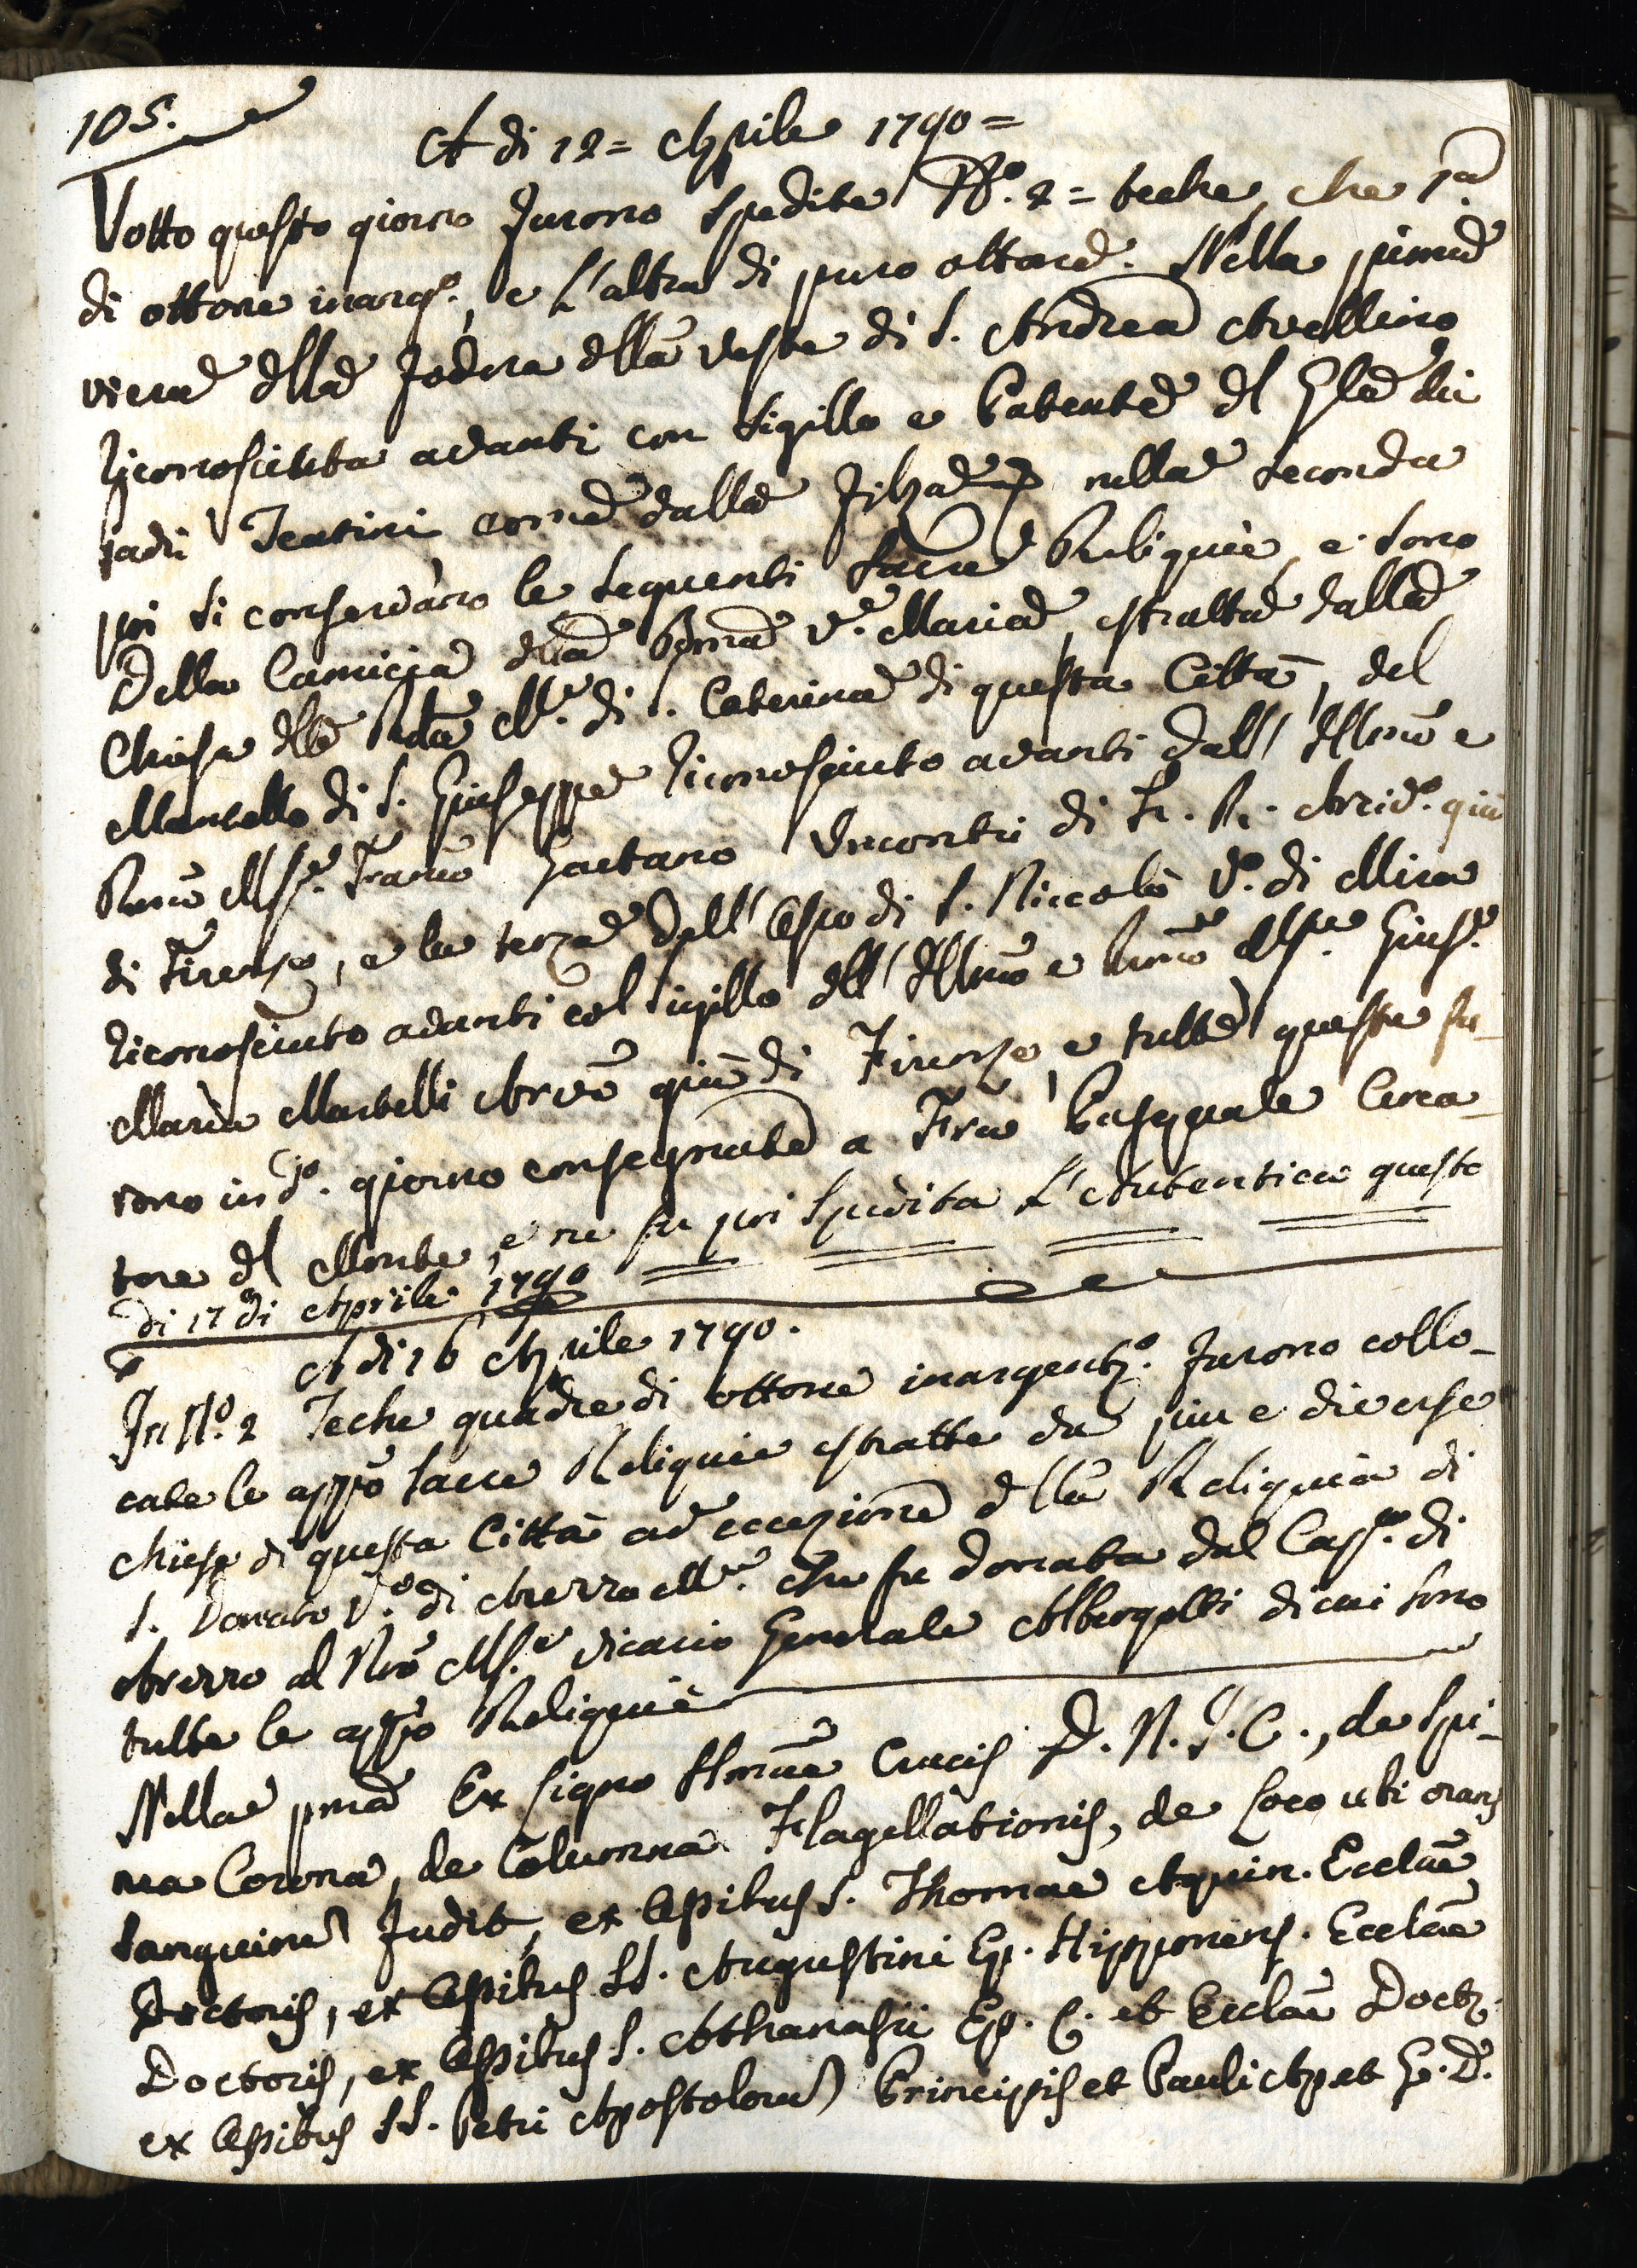 105.
A di 12 = Aprile 1790 =
Sotto questo giorno furono spedite N.º 2 = teche, che 1.ª
di ottone inarg.º, e l'altra di puro ottone. Nella prima
vi era della fodera della veste di S. Andrea Avellino
riconosciuta avanti con sigillo e Patente del Gle dei
Padri Teatini come dalla Filza e nella seconda
poi si conservano le seguenti Sacre Reliquie, e sono
Della Camicia della Bma V.e Maria, estratta dalla
Chiesa delle Rde M.e di S. Caterina di questa Città, del
Mantello di S. Giuseppe riconosciuto avanti dall' Illmo e
Rmo Msr.e Franco Gaetano Incontri di Fr. R. Arciv.º già
di Firenze, e la terza dell' Ossa di S. Niccolò V.º di Mira
riconosciuto avanti col sigillo dell' Illmo e Rmo Msr.e Gius.e
Maria Martelli Arcivo già di Firenze, e tutte queste fu-
rono in d.º giorno consegnate a Fra Pasquale Cerca-
tore del Monte, e ne fu poi spedita l'Autentica questo
di 17 di Aprile 1790
A di 16 Aprile 1790.
In N.º 2 Teche quadre di ottone inargent.º furono collo-
cate le appo sacre Reliquie estratte da piu e diverse
chiese di questa Città ad eccezione della Reliquia di
S. Donato V.º di Arezzo M.e che fu donata dal Cap.º di
Arezzo al Nro Msr.e Vicario Generale Albergotti di cui sono
tutte le appo Reliquie
Nella pma Ex ligno Smae Crucis D. N. J. C., de Spi-
nea Corona, de Columna Flagellationis, de loco ubi orans
sanguinem sudit, ex Ossibus S. Thomae Aquin. Ecclae
Doctoris, ex Ossibus SS. Augustini Ep. Hipponens. Ecclae
Doctoris, ex Ossibus S. Athanasii Ep. C. et Ecclae Doct.
ex Ossibus SS. Petri Apostolorum Principis et Pauli Ap. et G. D.